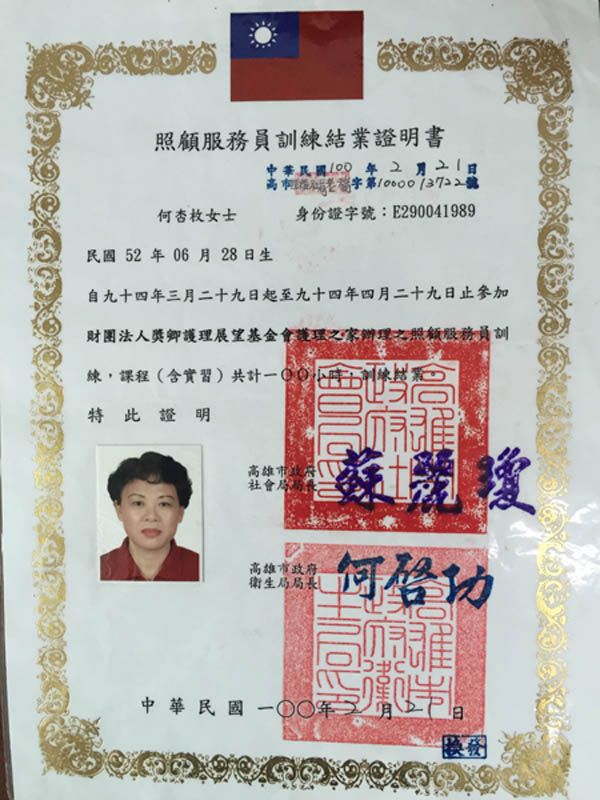 照顧服務員訓練結業證明書
中華民國100年2月21日
高市 字第1000013722號
何杏枚女士 身份證字號：E290041989
民國 52 年 06 月 28日生
自九十四年三月二十九日起至九十四年四月二十九日止參加
財團法人獎卿護理展望基金會護理之家辦理之照顧服務員訓
練，課程（含實習）共計一〇〇小時，訓練結業
特此證明
高雄市政府
社會局局長 蘇麗瓊
高雄市政府社會局印
高雄市政府
衛生局局長 何啓功
高雄市政府衛生局印
中華民國一〇〇年2月21日
換發